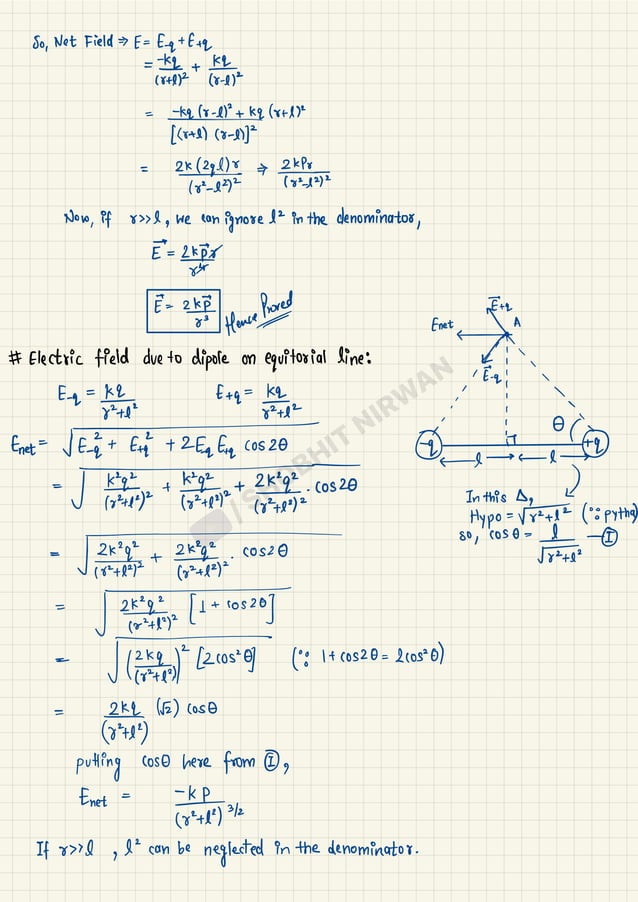 So, Net Field ⇒ E = E-q + E+q
= -kq/(r+l)² + kq/(r-l)²
= -kq (r-l)² + kq (r+l)² / [(r+l) (r-l)]²
= 2k (2ql) r / (r²-l²)² ⇒ 2kPr / (r²-l²)²
Now, if r>>l, we can ignore l² in the denominator,
E⃗ = 2kp⃗r / r⁴
E⃗ = 2kp⃗ / r³ Hence Proved
# Electric field due to dipole on equitorial line:
E-q = kq / r²+l² E+q = kq / r²+l²
Enet = √(E-q² + E+q² + 2Eq E+q cos2θ)
= √(k²q²/(r²+l²)² + k²q²/(r²+l²)² + 2k²q²/(r²+l²)² . cos2θ)
= √(2k²q²/(r²+l²)² + 2k²q²/(r²+l²)² . cos2θ)
= √(2k²q²/(r²+l²)² [1 + cos2θ])
= √((2kq/(r²+l²))² [2cos²θ]) (∵ 1+cos2θ = 2cos²θ)
= 2kq/(r²+l²) (√2) cosθ
putting cosθ here from Ⓘ,
Enet = -kp / (r²+l²)^3/2
If r>>l , l² can be neglected in the denominator.
E⃗+q
Enet
A
E⃗-q
θ
-q
+q
l
l
In this Δ,
Hypo = √r²+l² (∵ pythq
so, cosθ = l/√r²+l² —Ⓘ
/ SHOBHIT NIRWAN